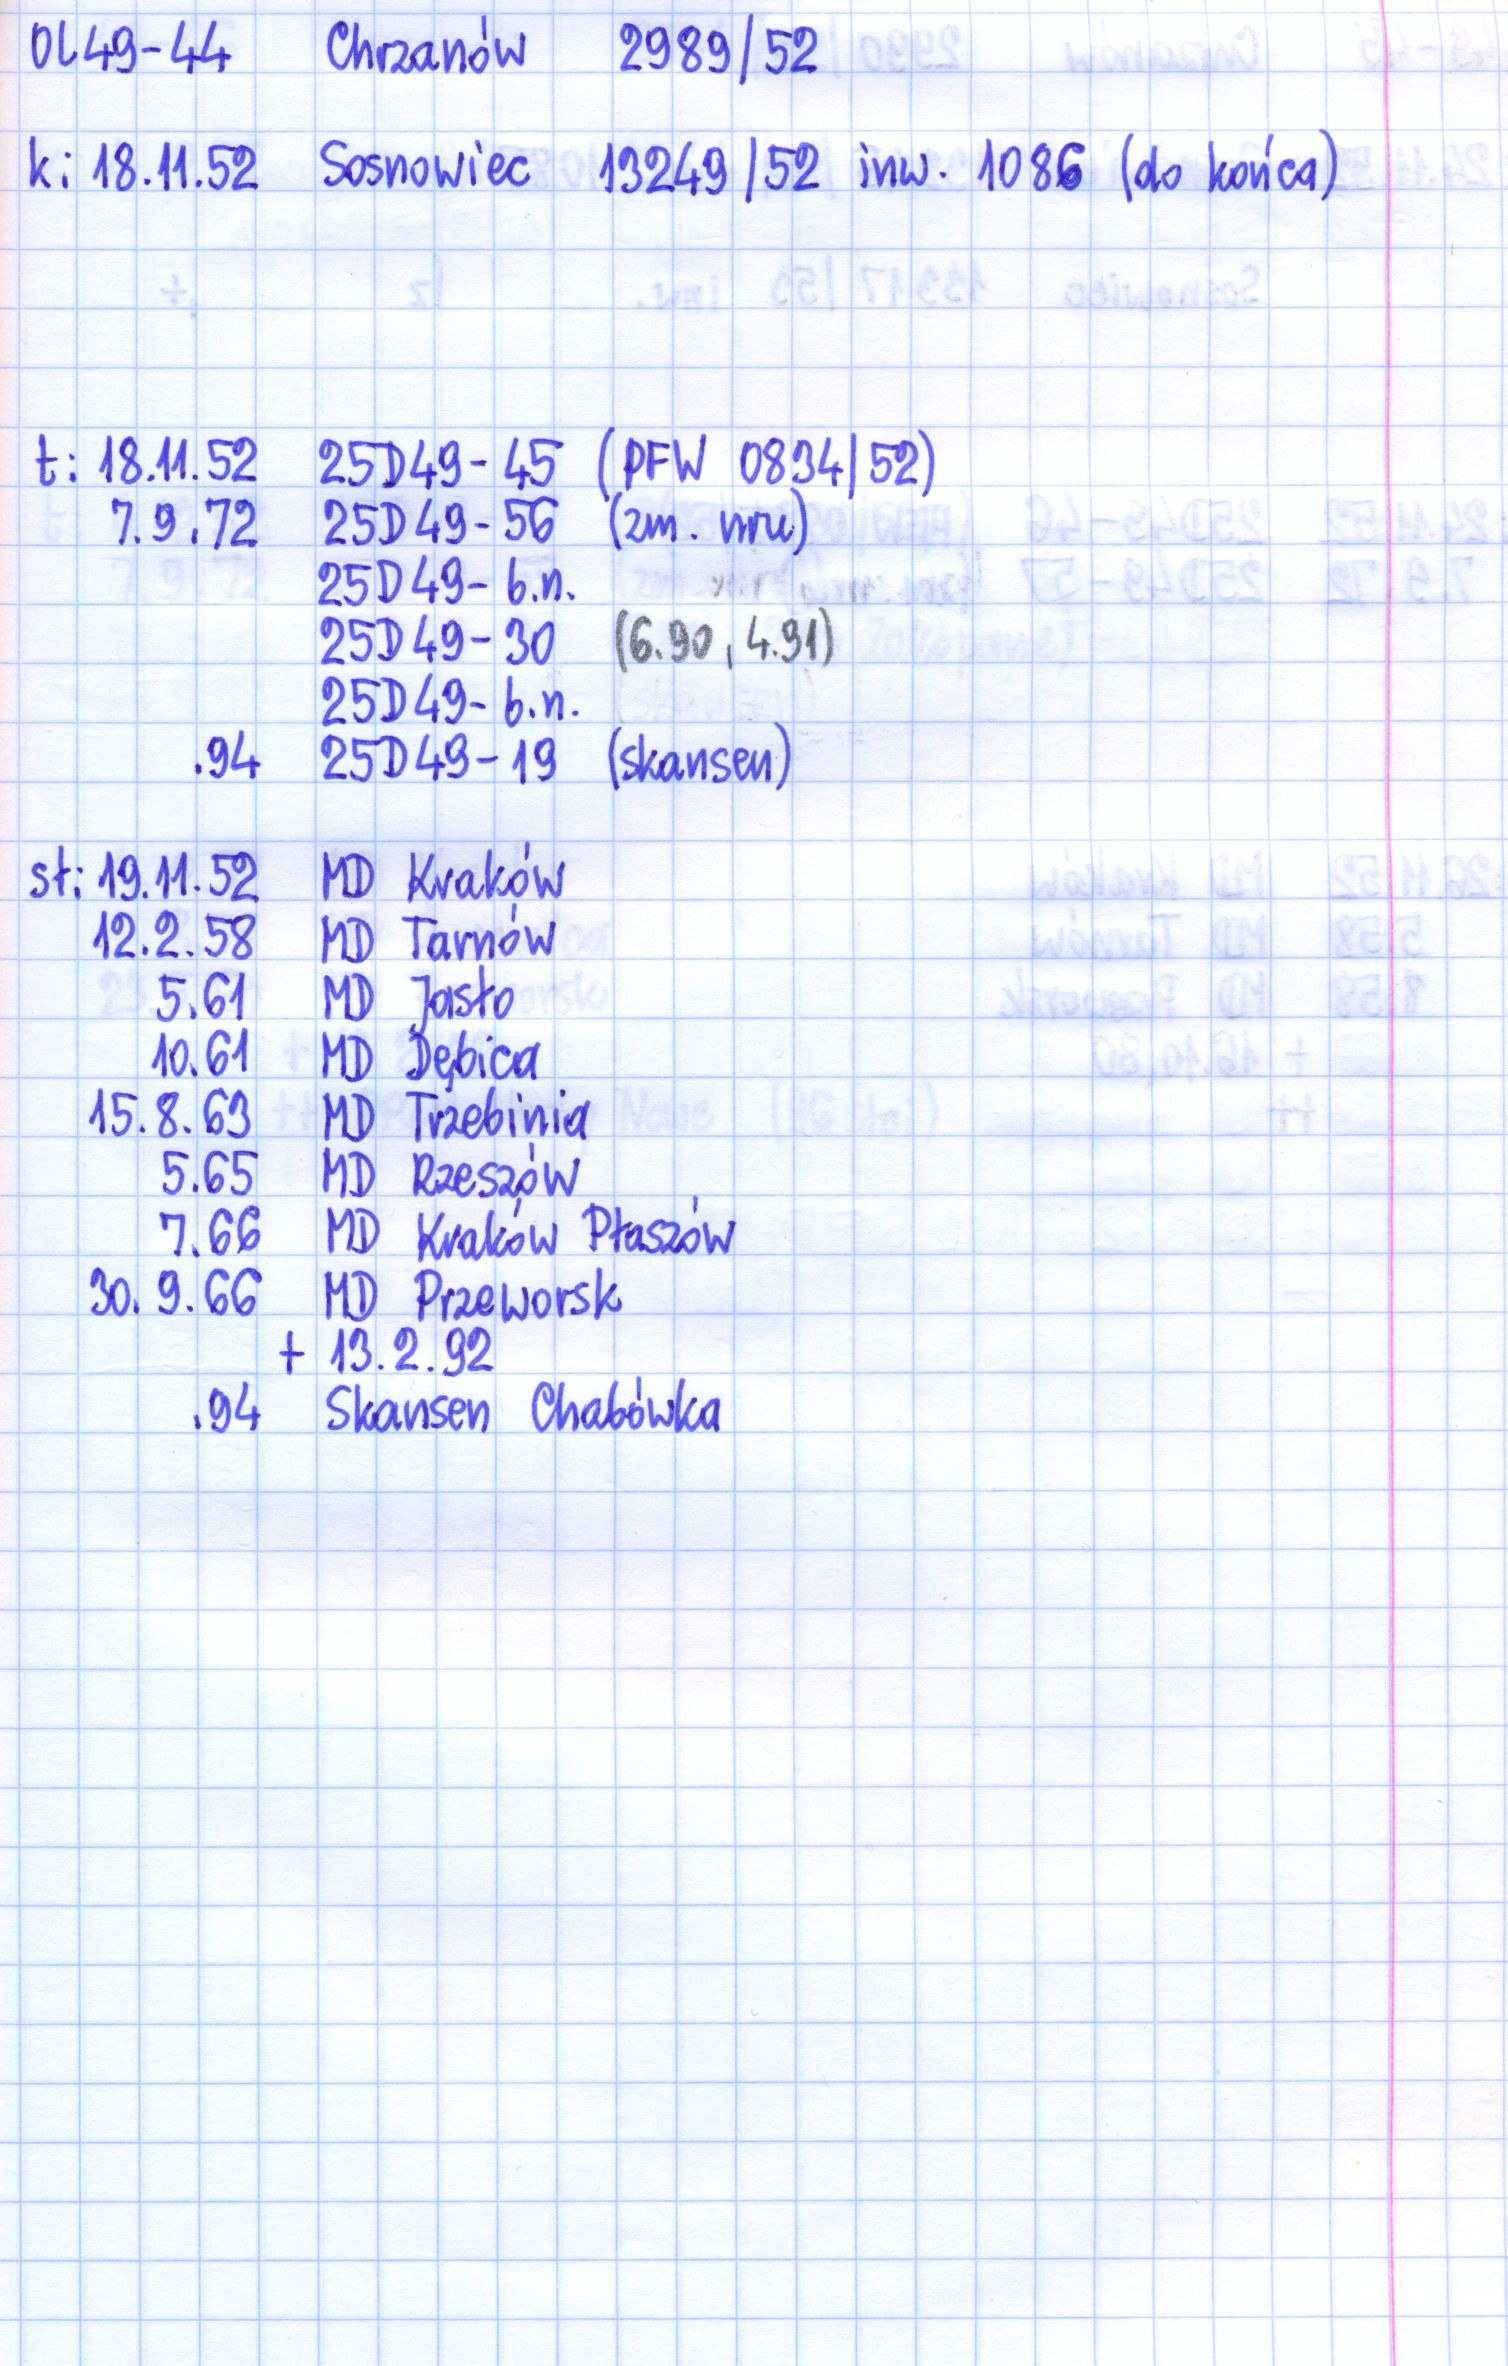 Ol49-44 Chrzanów 2989/52
k: 18.11.52 Sosnowiec 13249/52 inw. 1086 (do końca)
t: 18.11.52 25D49-45 (PFW 0834/52)
7.9.72 25D49-56 (zm. nru)
25D49-b.n.
25D49-30 (6.90, 4.91)
25D49-b.n.
.94 25D49-19 (skansen)
st: 19.11.52 MD Kraków
12.2.58 MD Tarnów
5.61 MD Jasło
10.61 MD Dębica
15.8.63 MD Trzebinia
5.65 MD Rzeszów
7.66 MD Kraków Płaszów
30.9.66 MD Przeworsk
+ 13.2.92
.94 Skansen Chabówka